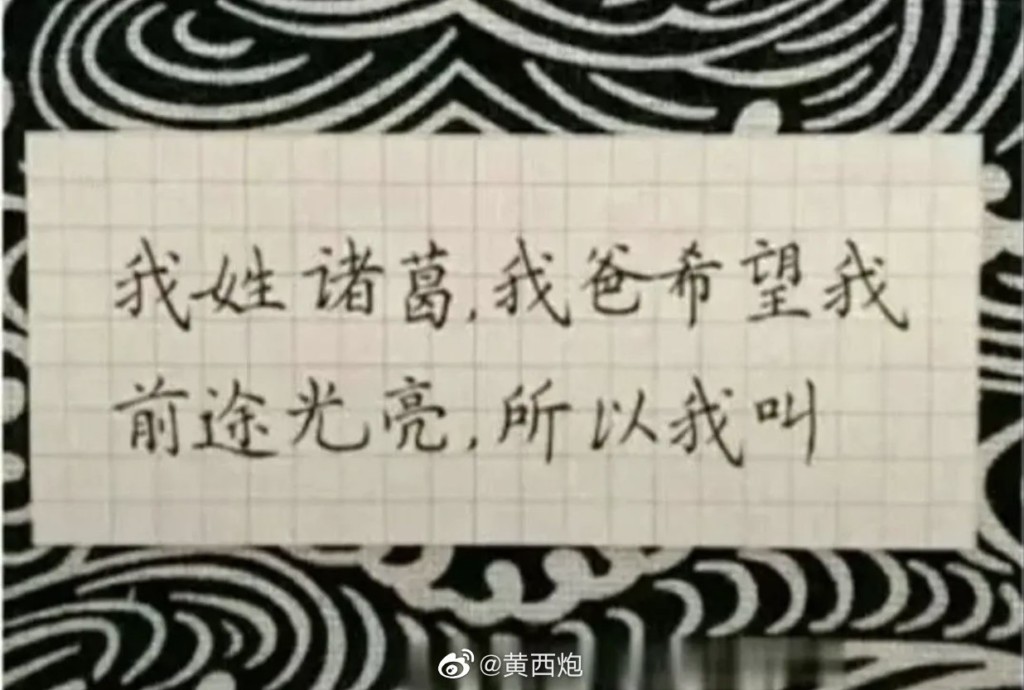 我姓诸葛,我爸希望我
前途光亮,所以我叫
@黄西炮